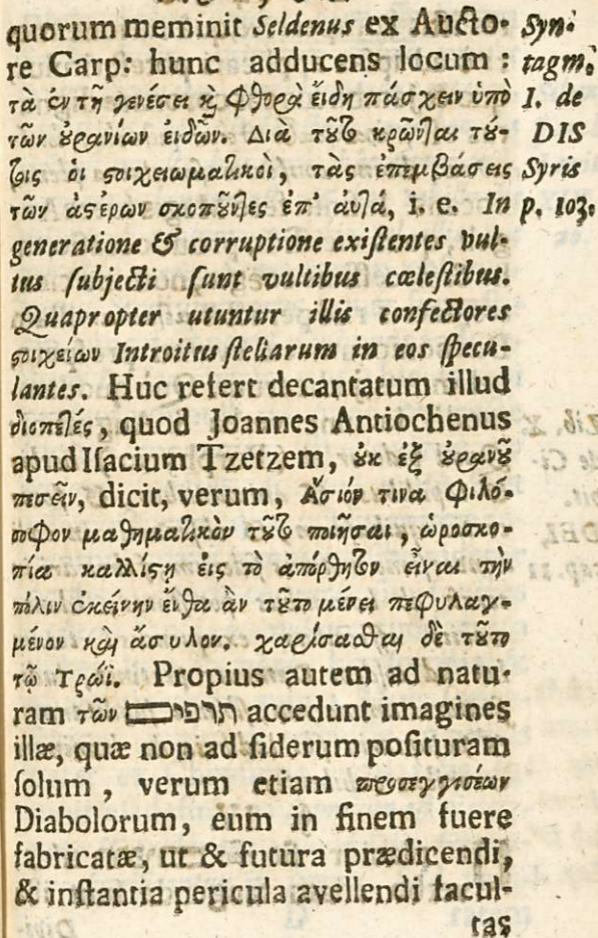 quorum meminit Seldenus ex Aucto-
re Carp: hunc adducens locum :
τὰ ἐν τῇ γενέσει ϗ φθορᾷ εἴδη πάσχειν ὑπὸ
τῶν ȣ̓ρανίων εἰδῶν. Διὰ τῦτο κρῶνται τύ-
τοις οἱ ϛοιχειωματικοὶ, τὰς ἐπεμβάσεις
τῶν ἀϛέρων σκοπȣ͂ντες ἐπ' ἀυτά, i. e. In
generatione & corruptione exiſtentes vul-
tus ſubjecti ſunt vultibus cœleſtibus.
Quapropter utuntur illis confectores
ϛοιχείων Introitus ſtellarum in eos ſpecu-
lantes. Huc refert decantatum illud
διοπετές, quod Joannes Antiochenus
apud Iſacium Tzetzem, ȣ̓κ ἐξ ȣ̓ρανȣ͂
πεσεῖν, dicit, verum, Ἄσιόν τινα φιλό-
σοφον μαθηματικὸν τῦτο ποιῆσαι, ὡροσκο-
πία καλλίϛῃ εἰς τὸ ἀπόρθητον εἶναι τὴν
πόλιν ἐκείνην ἔνθα ἂν τῦτο μένει πεφυλαγ-
μένον καὶ ἄσυλον. χαρίσασθαι δὲ τῦτο
τῷ Τρώϊ. Propius autem ad natu-
ram τῶν תרפים accedunt imagines
illæ, quæ non ad ſiderum poſituram
ſolum, verum etiam προσεγγισέων
Diabolorum, eum in finem fuere
fabricatæ, ut & futura prædicendi,
& inſtantia pericula avellendi facul-
tas
Syn-
tagm.
I. de
DIS
Syris
p. 103.